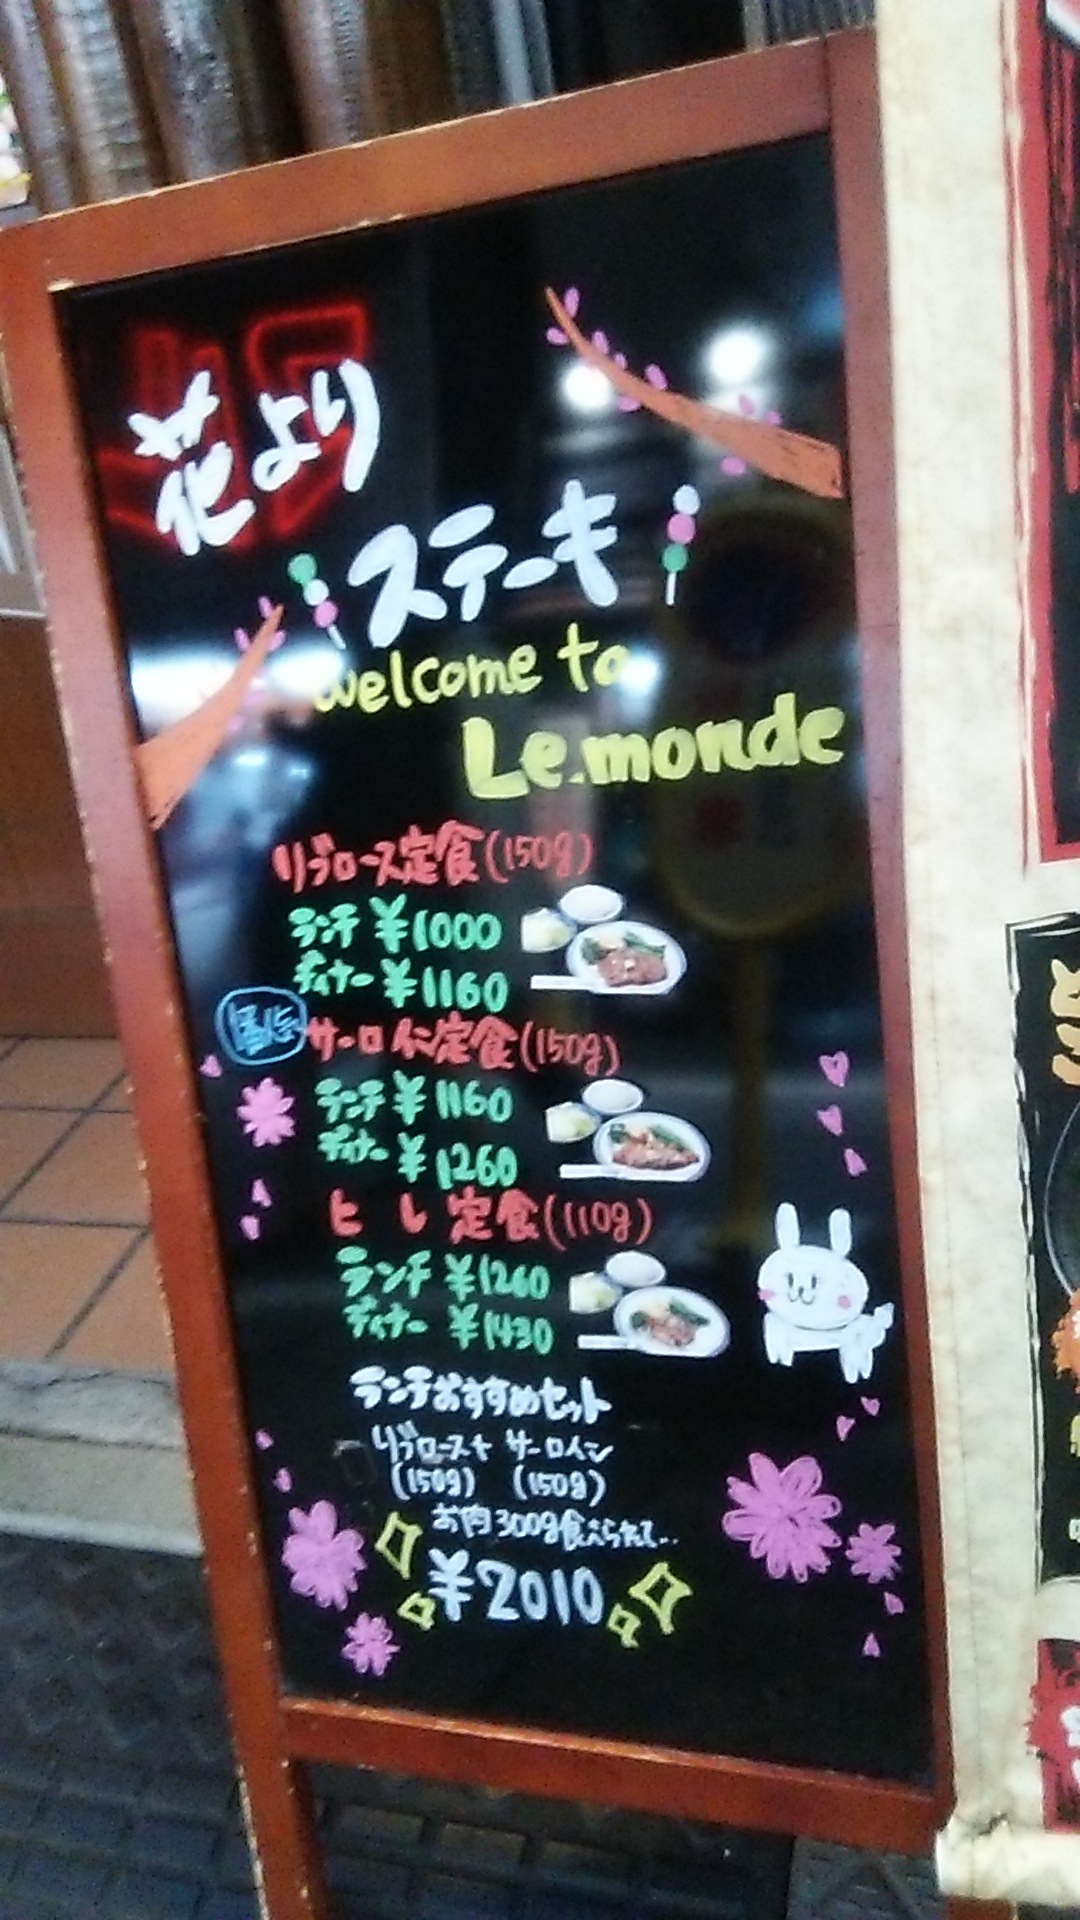 花より
ステーキ
welcome to
Le.monde
リブロース定食(150g)
ランチ ¥1000
ディナー ¥1160
サーロイン定食(150g)
ランチ ¥1160
ディナー ¥1260
ヒレ定食(110g)
ランチ ¥1260
ディナー ¥1430
ランチおすすめセット
リブロース+ サーロイン
(150g) (150g)
お肉300g食べられて..
¥2010